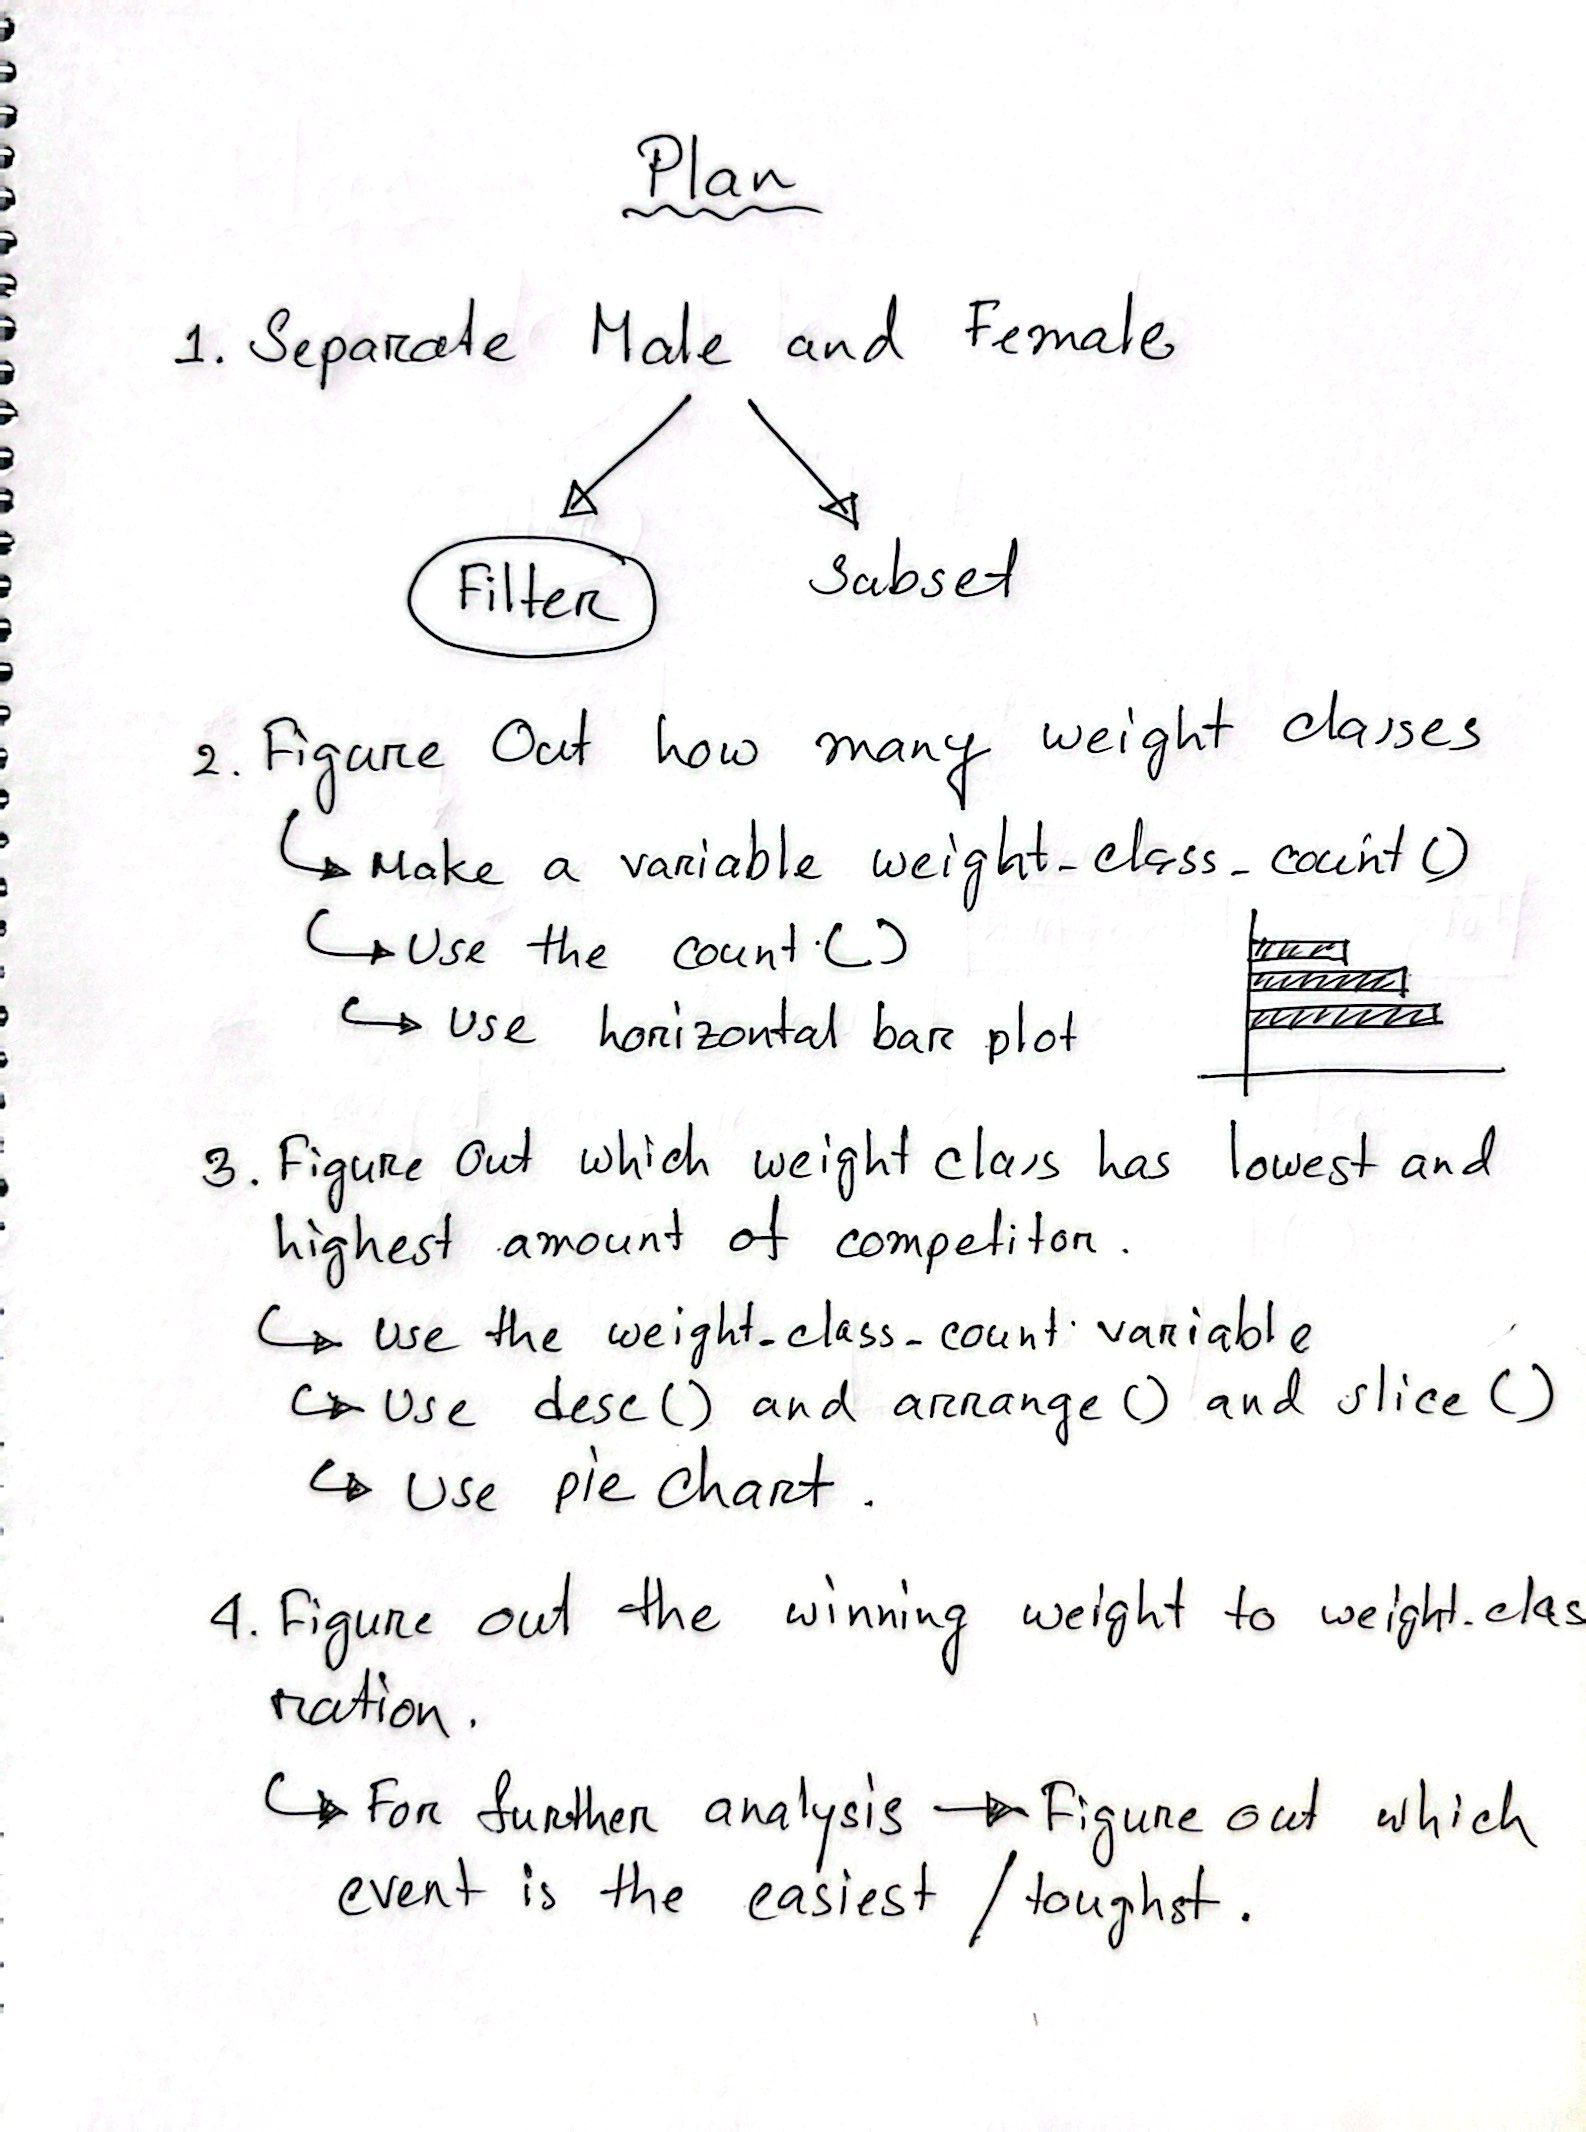 Plan
1. Separate Male and Female
Filter
Subset
2. Figure Out how many weight classes
Make a variable weight_class_count()
Use the count()
Use horizontal bar plot
3. Figure Out which weight class has lowest and
highest amount of competitor.
Use the weight_class_count variable
Use desc() and arrange() and slice()
Use pie chart.
4. Figure out the winning weight to weight-clas
ration.
For further analysis → Figure out which
event is the easiest / toughst.